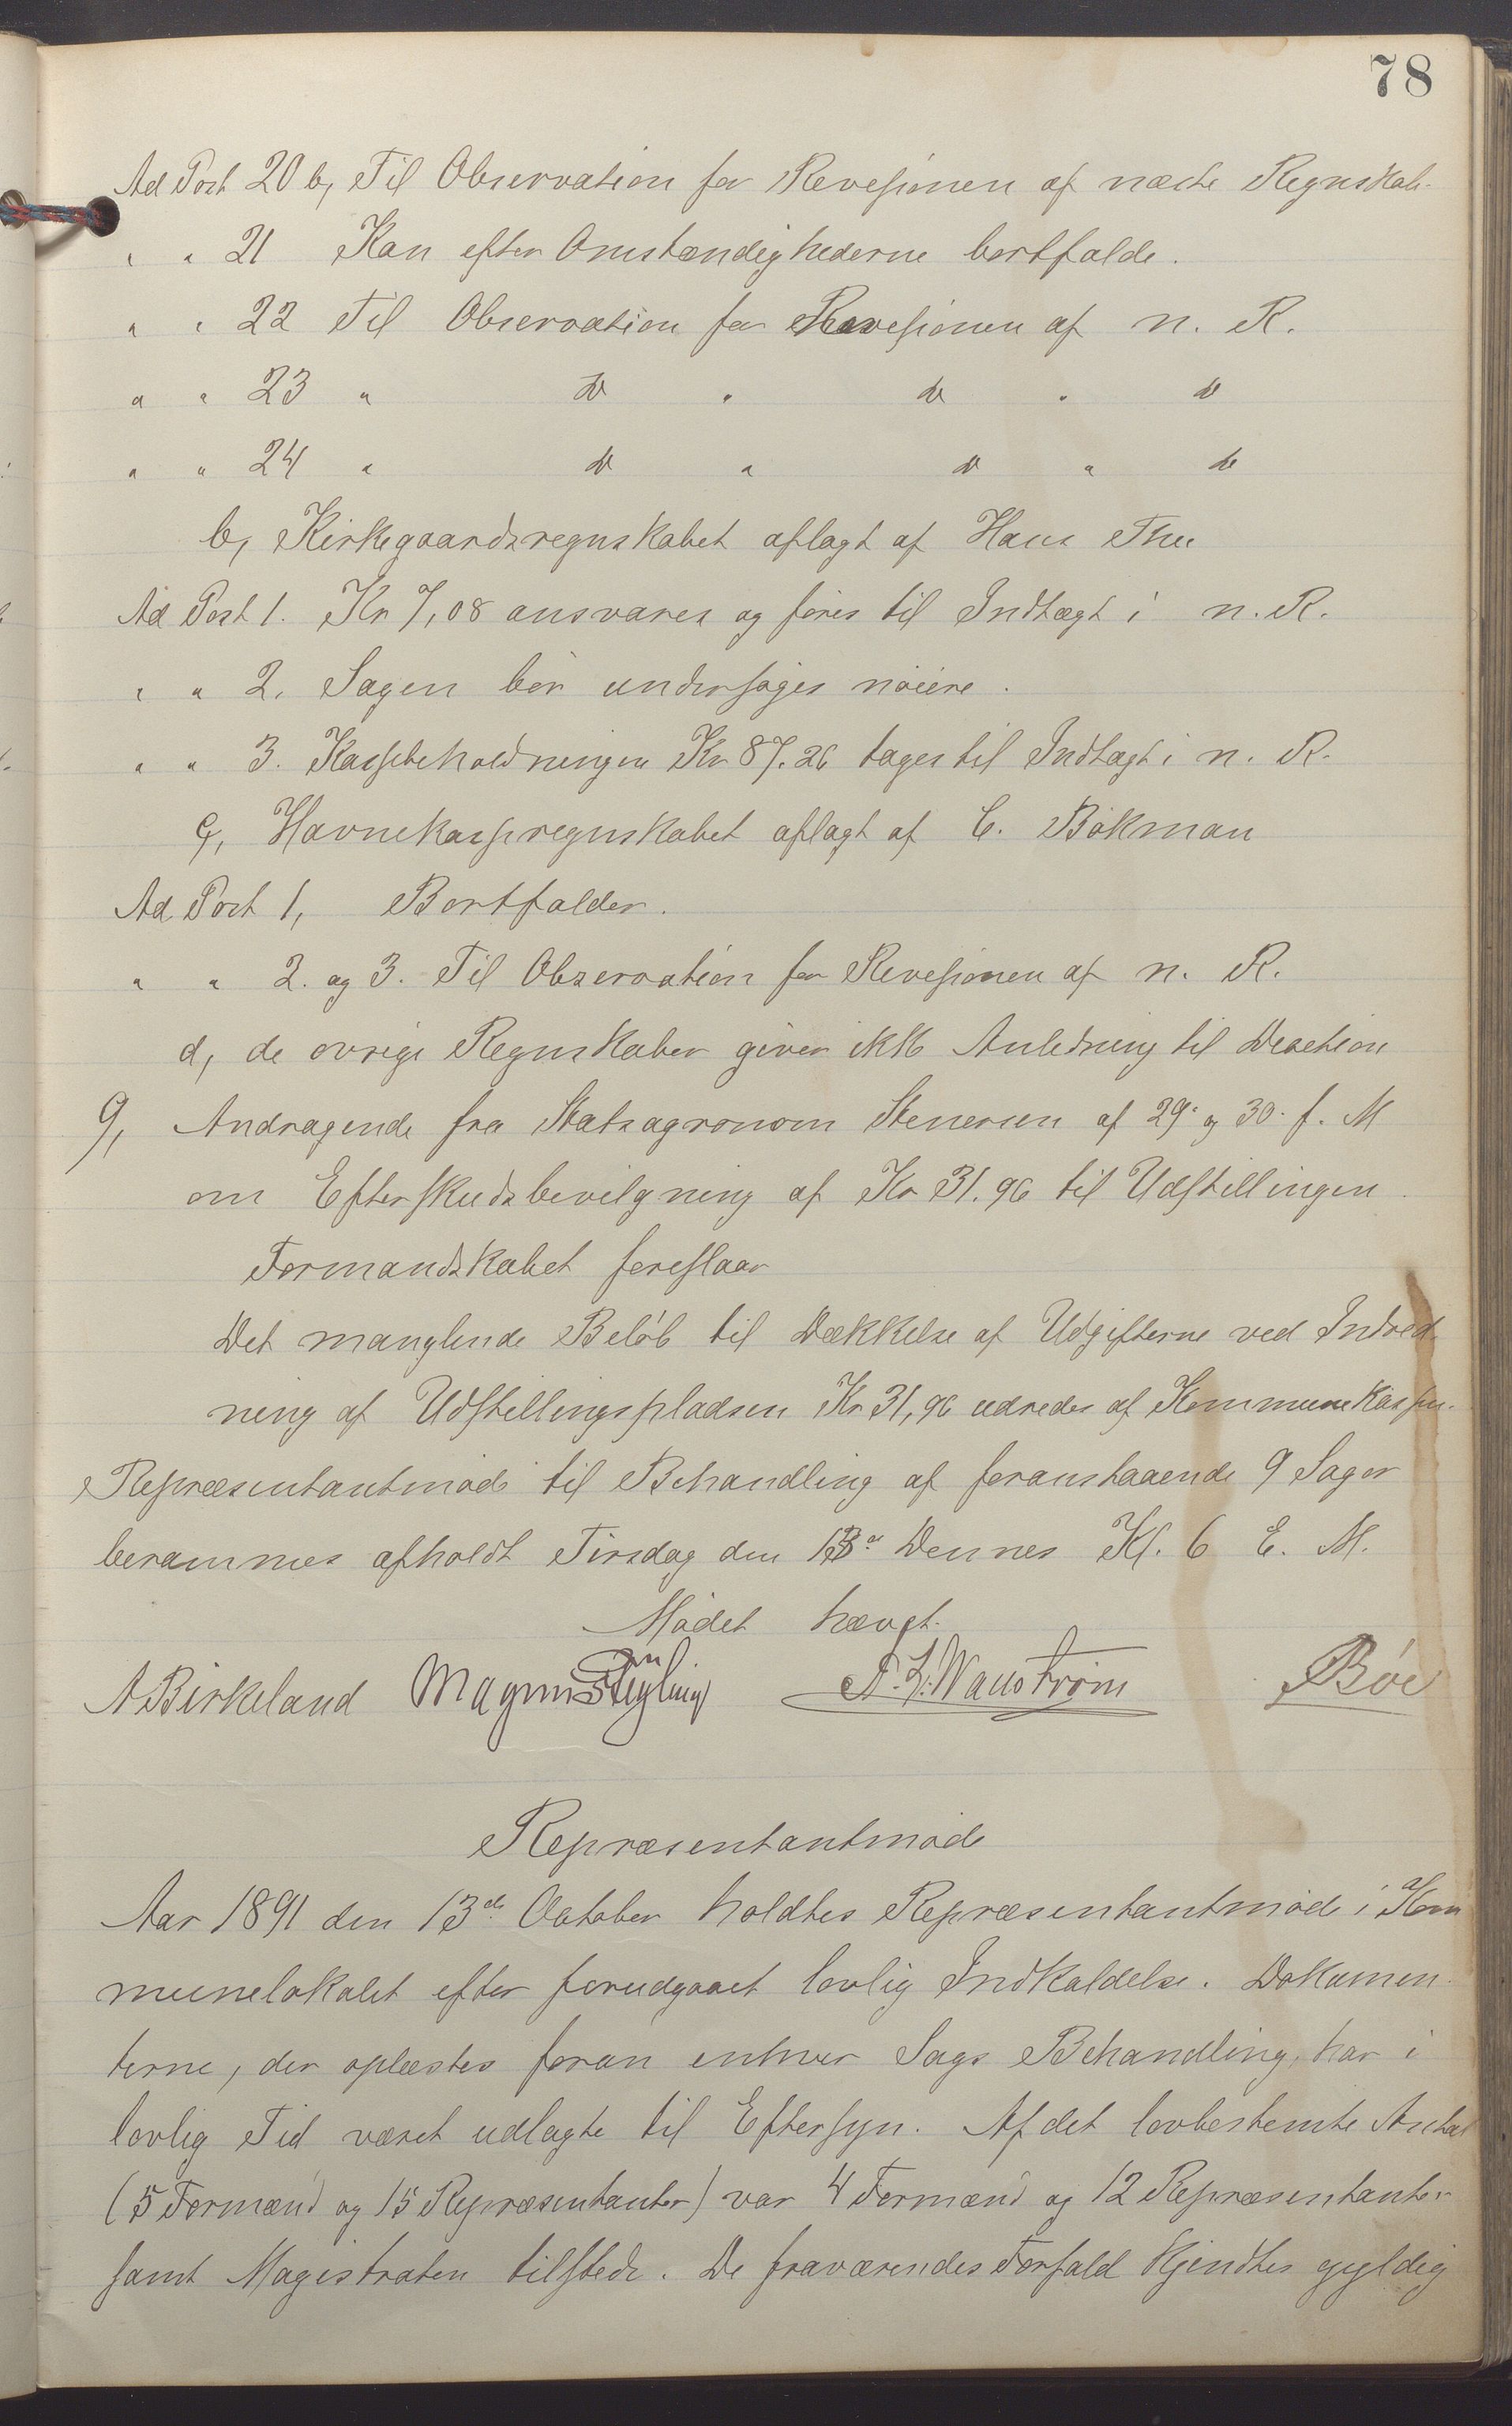 78
Ad Post 20 b, Til Observation for Revesionen af næste Regnskab.
" " 21 Kan efter Omstændighederne bortfalde.
" " 22 Til Observation for Revesionen af n. R.
" " 23 " do " do " do
" " 24 " do " do " do
b, Kirkegaardsregnskabet aflagt af Hans Thu
Ad Post 1. Kr 7,08 ansvares og føres til Indtægt i n. R.
" " 2. Sagen bør undersøges nøiere.
" " 3. Kassebeholdningen Kr 87.26 tages til Indtægt i n. R.
c, Havnekasseregnskabet aflagt af C. Bøkman
Ad Post 1, Bortfalder.
" " 2. og 3. Til Observation for Revesionen af n. R.
d, de øvrige Regnskaber giver ikke Anledning til Desetion
9, Andragende fra Statsagronom Stenersen af 29. og 30. f. M
om Efterskudsbevilgning af Kr 31.96 til Udstillingen.
Formandskabet foreslaar
Det manglende Beløb til Dækkelse af Udgifterne ved Indred
ning af Udstillingspladsen Kr 31,96 udredes af Kommunekassen.
Repræsentantmøde til Behandling af foranstaaende 9 Sager
berammes afholdt Tirsdag den 13de Dennes Kl. 6 E. M.
Mødet hævet.
A Birkeland Magnus Tügling A. L. Wanstrøm Bøe
Repræsentantmøde
Aar 1891 den 13de October holdtes Repræsentantmøde i Kom
munelokalet efter forudgaaet lovlig Indkaldelse. Dokumen
terne, der oplæstes foran enhver Sags Behandling, har i
lovlig Tid været udlagte til Eftersyn. Af det lovbestemte Antal
(5 Formænd og 15 Repræsentanter) var 4 Formænd og 12 Repræsentanter
samt Magistraten tilstede. De fraværendes Forfald kjendtes gyldig